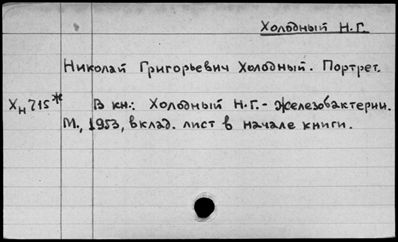 Холодный Н.Г.
Николай Григорьевич Холодный. Портрет.
Хн 715* В кн.: Холодный Н.Г. - Железобактерии.
М., 1953, вклад. лист в начале книги.